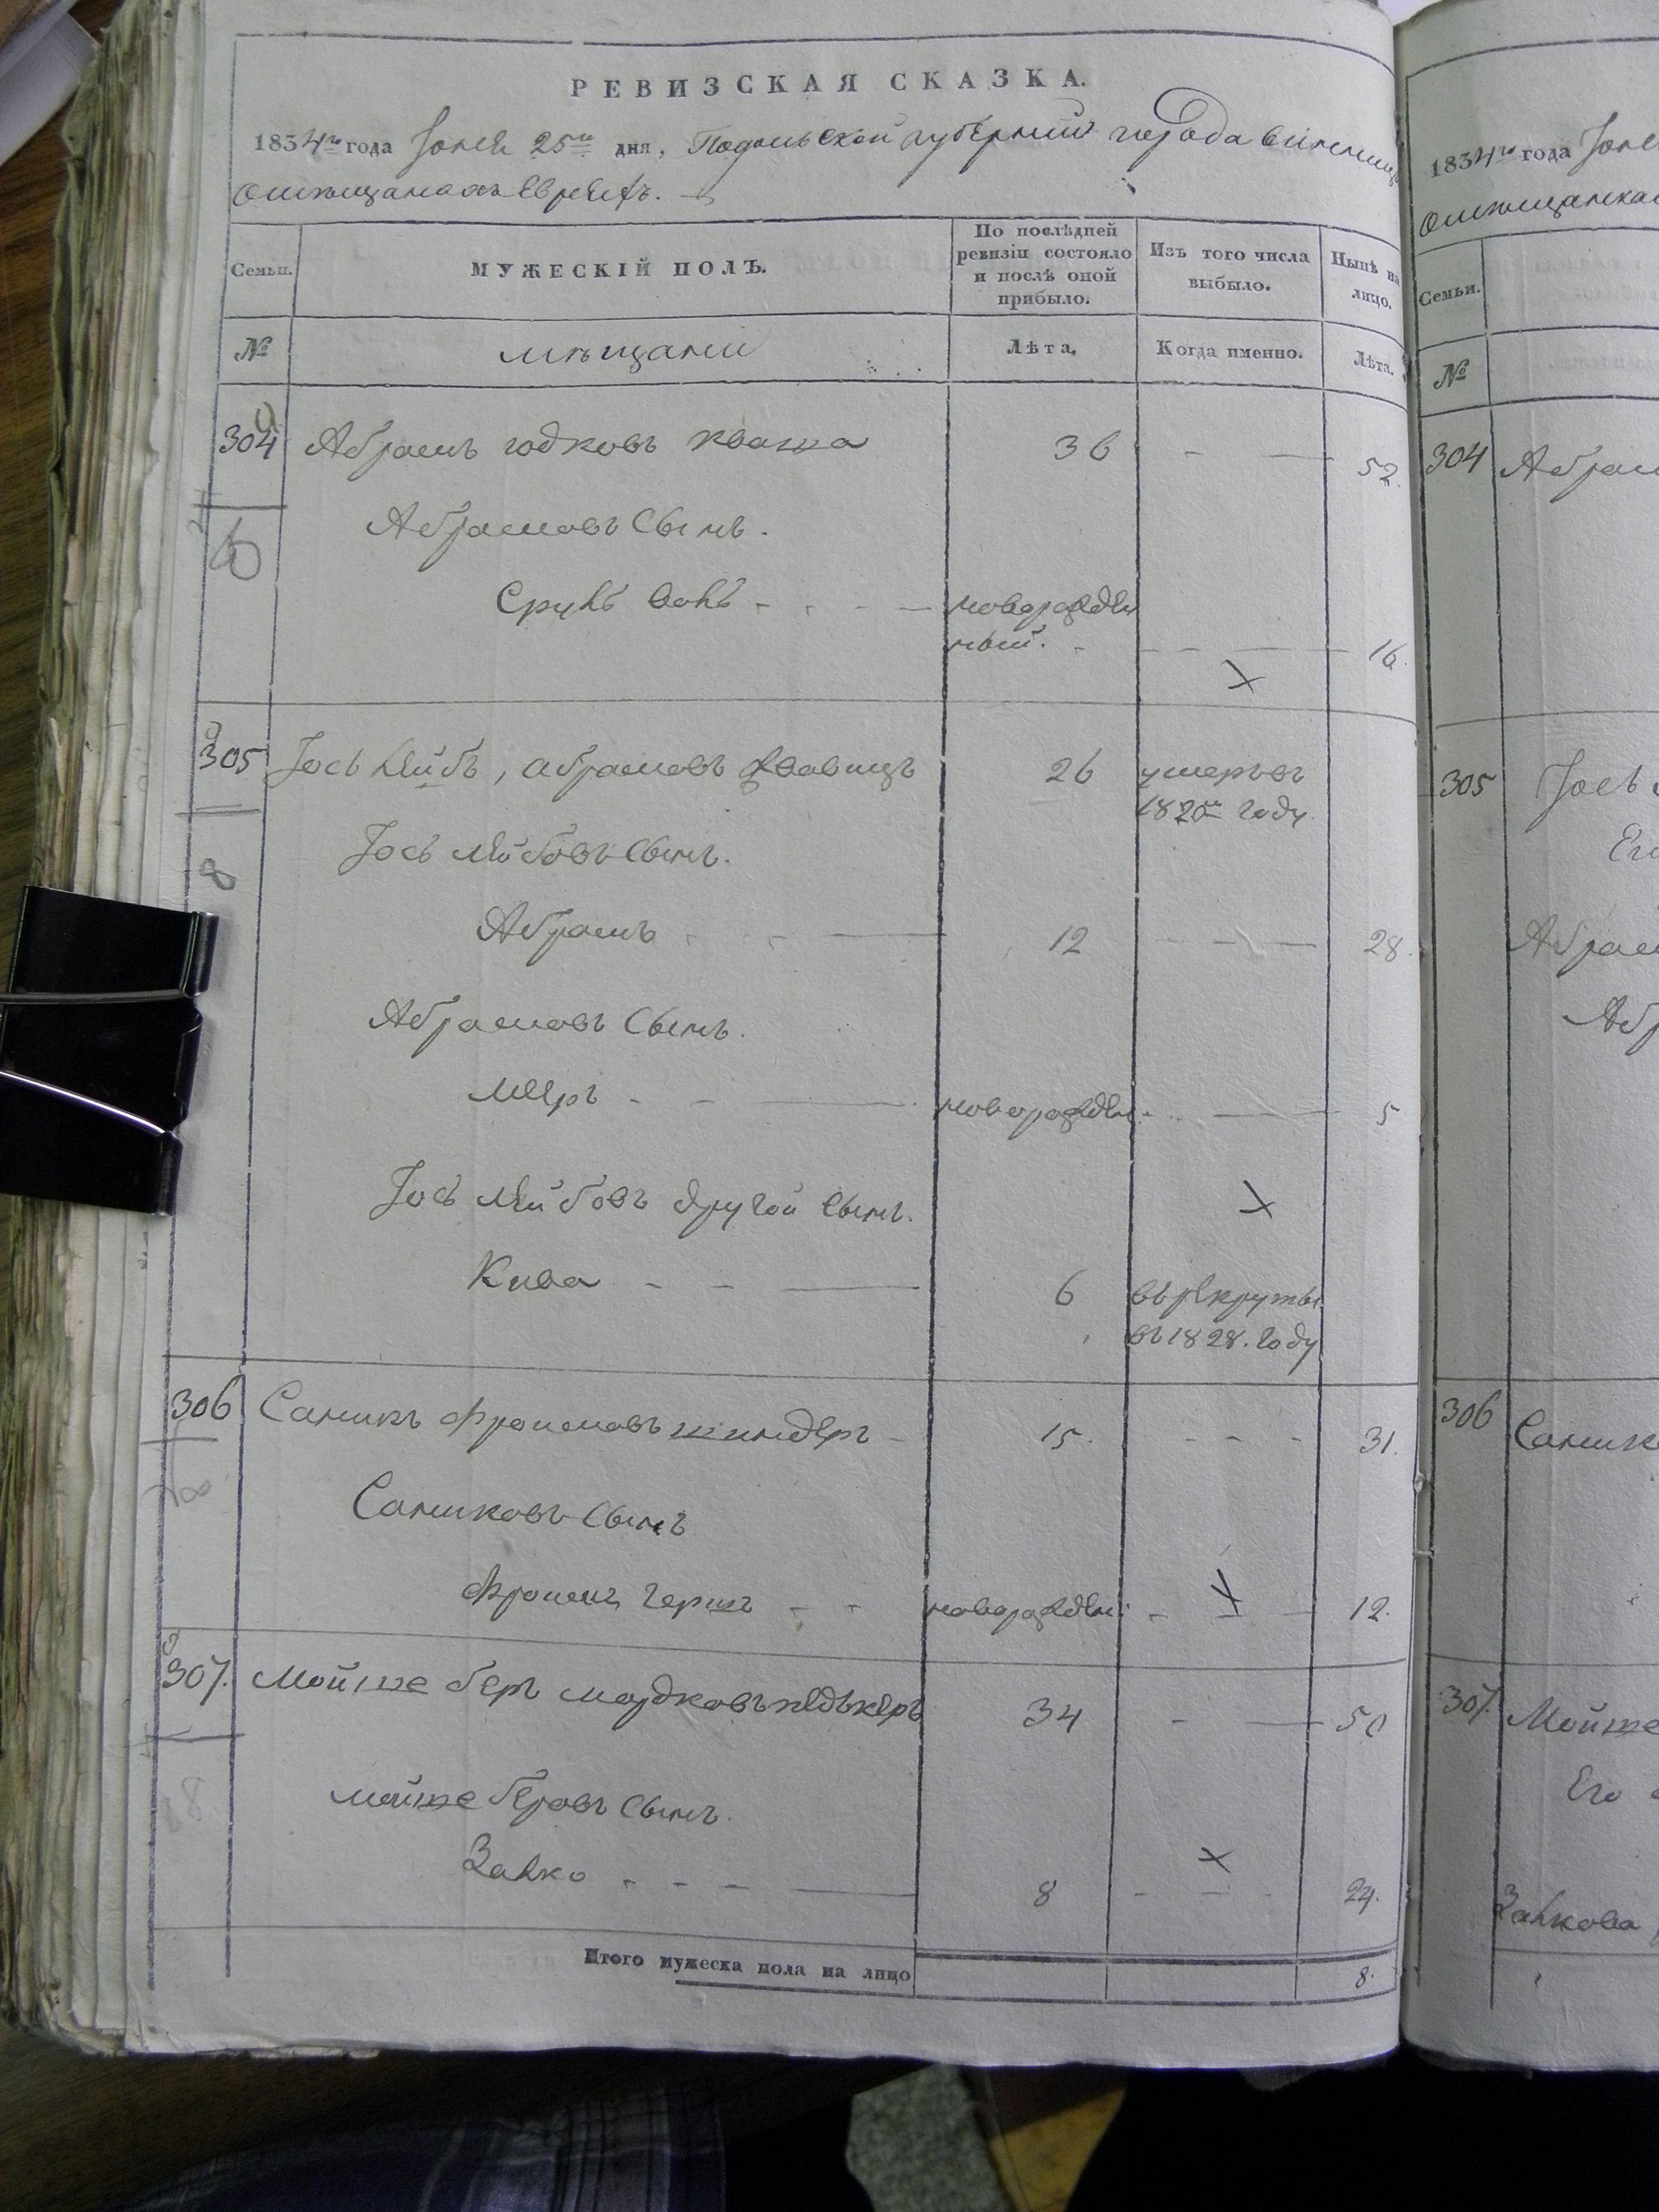 РЕВИЗСКАЯ СКАЗКА.
1834го года Іюня 25го дня, Подольской губерніи города Винницы
О мѣщанахъ Евреяхъ.
Семьи.
МУЖЕСКІЙ ПОЛЪ.
По послѣдней ревизіи состояло и послѣ оной прибыло.
Изъ того числа выбыло.
Нынѣ на лицо.
№
мѣщани
Лѣта.
Когда именно.
Лѣта.
304 Абрамъ Юдковъ Кваша 36 52.
6
Абрамовъ Сынъ.
Сруль новорожден
ный. 16.
305 Іось Лейбъ, Абрамовъ 26 умеръ въ
1820м году
8
Іось Лейбовъ Сынъ.
Абрамъ 12 28.
Абрамовъ Сынъ.
Мееръ новорожден: 5
Іось Лейбовъ другой Сынъ.
Кива 6 въ рекруты
въ 1828. году
306 Самикъ Фроимовъ Шиндеръ 15. 31.
Самиковъ Сынъ
Фроимъ Гершъ новорожден: 12.
307. Мойше Беръ Мордковъ 34 50
Мойше Беровъ Сынъ.
Занко 8 24.
Итого мужеска пола на лицо 8.
1834го года Іюн
О мѣщанска
Семьи.
№
304 Абрам
305 Іось
Его
Абрам
Абр
306 Самик
307. Мойше
Его
Занкова